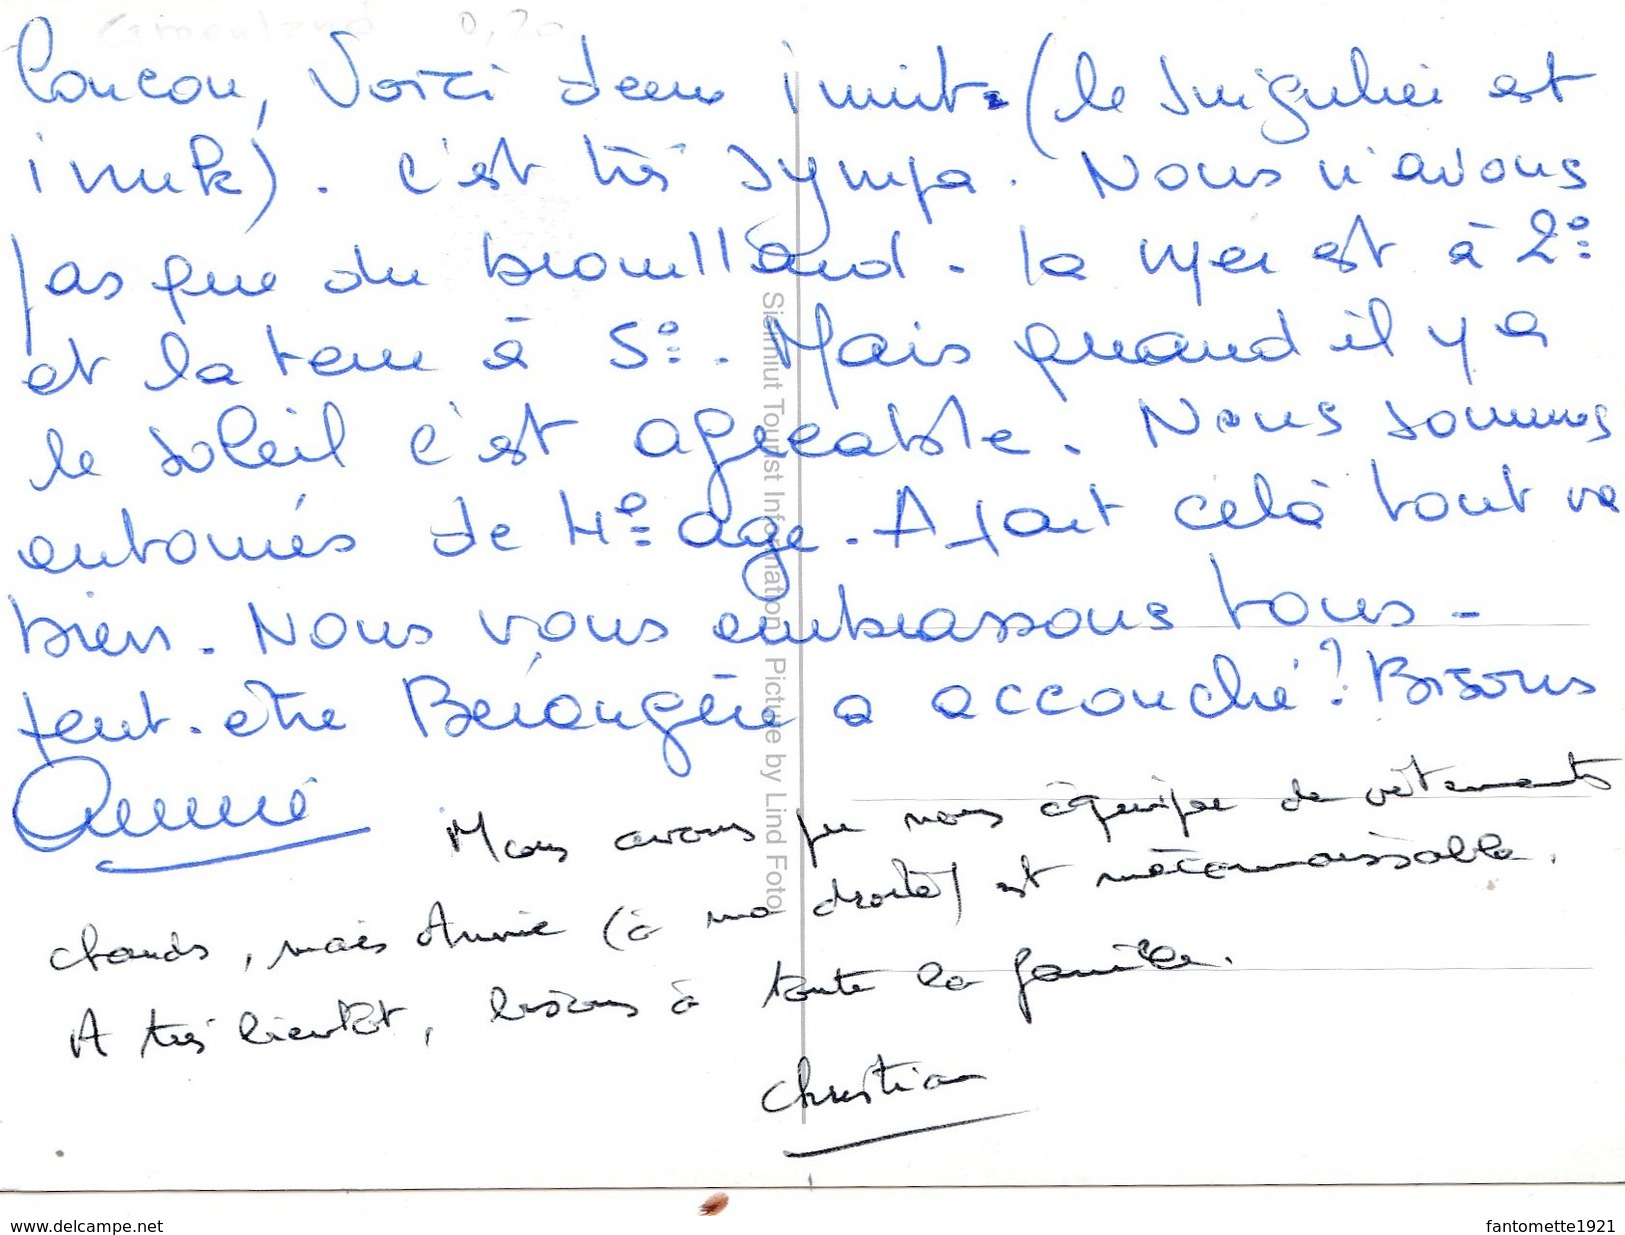 Groenland 0,70
Coucou, Voici deux inuits (le singulier est
inuk). c'est très sympa. Nous n'avons
pas que du brouillard. la mer est à 2°
et la terre à 5°. Mais quand il y a
le soleil c'est agréable. Nous sommes
entourés de 4e age. A part celà tout va
bien. Nous vous embrassons tous -
peut-etre Bérangère a accouché? Bisous
Annie
Nous avons pu nous équiper de vêtements
chauds, mais Annie (à ma droite) est méconnaissable.
A très bientôt, bisous à toute la famille.
Christian
Sisimiut Tourist Information Picture by Lind Foto
www.delcampe.net
fantomette1921